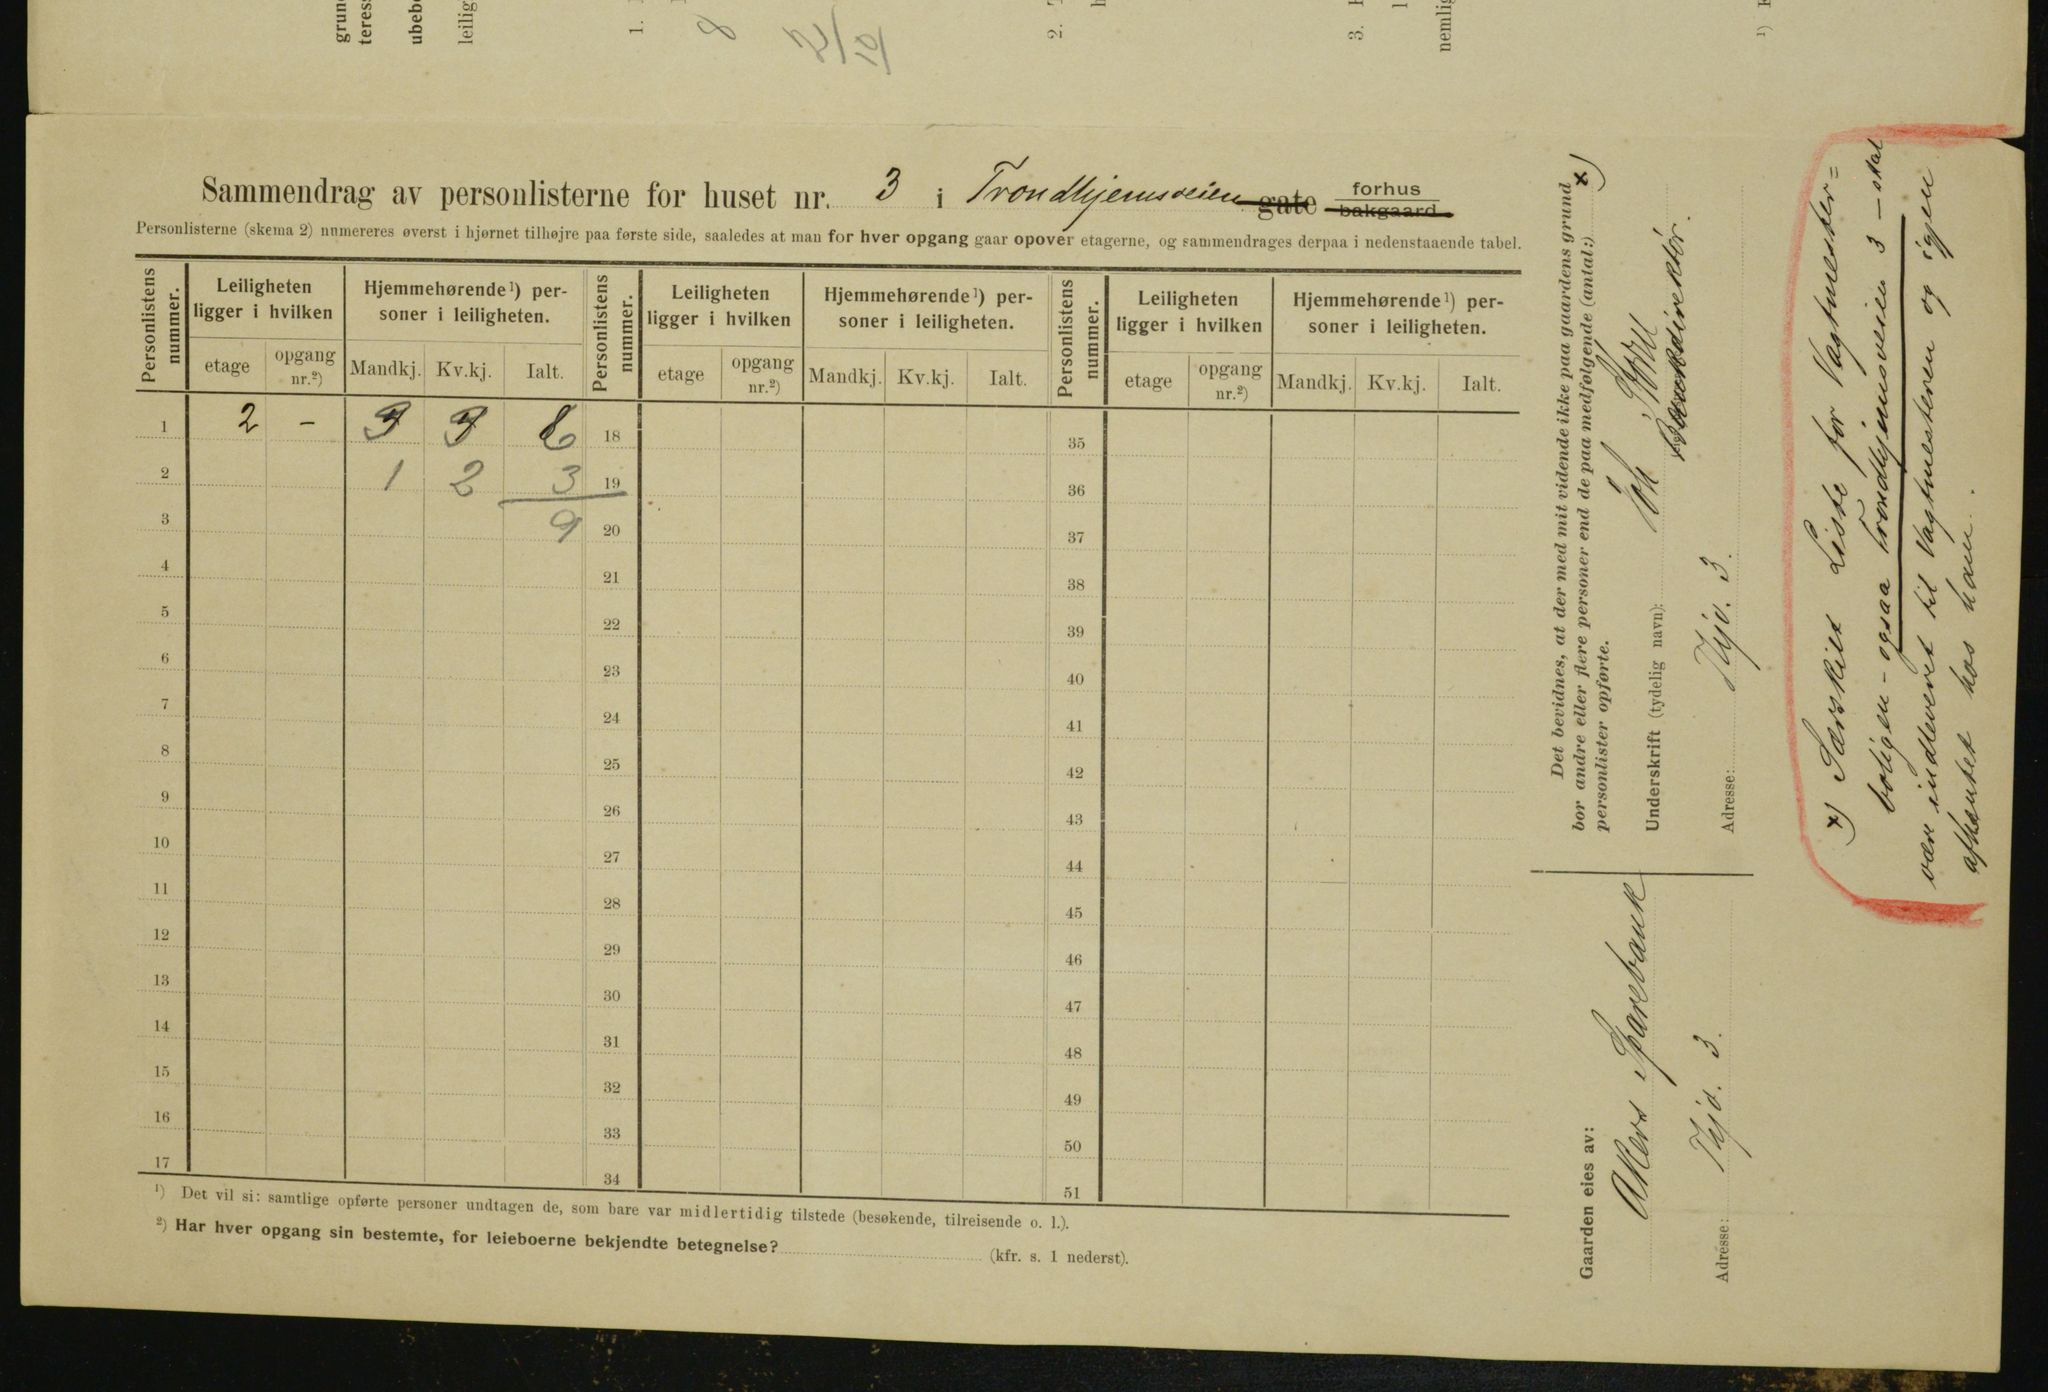 grun
teress
ubebo
leilig
1.
8
2.
3.
nemlig
¹)
Sammendrag av personlisterne for huset nr. 3 i Trondhjemsveien gate forhus bakgaard
Personlisterne (skema 2) numereres øverst i hjørnet tilhøjre paa første side, saaledes at man for hver opgang gaar opover etagerne, og sammendrages derpaa i nedenstaaende tabel.
Personlistens nummer. Leiligheten ligger i hvilken Hjemmehørende¹) personer i leiligheten. Personlistens nummer. Leiligheten ligger i hvilken Hjemmehørende¹) personer i leiligheten. Personlistens nummer. Leiligheten ligger i hvilken Hjemmehørende¹) personer i leiligheten.
etage opgang nr.²) Mandkj. Kv.kj. Ialt. etage opgang nr.²) Mandkj. Kv.kj. Ialt. etage opgang nr.²) Mandkj. Kv.kj. Ialt.
1 2 – 3 3 6 18 35
2 1 2 3 19 36
3 9 20 37
4 21 38
5 22 39
6 23 40
7 24 41
8 25 42
9 26 43
10 27 44
11 28 45
12 29 46
13 30 47
14 31 48
15 32 49
16 33 50
17 34 51
¹) Det vil si: samtlige opførte personer undtagen de, som bare var midlertidig tilstede (besøkende, tilreisende o. l.).
²) Har hver opgang sin bestemte, for leieboerne bekjendte betegnelse? (kfr. s. 1 nederst).
Det bevidnes, at der med mit vidende ikke paa gaardens grund
bor andre eller flere personer end de paa medfølgende (antal:) x)
personlister opførte.
Underskrift (tydelig navn): Joh
Bankdirektør.
Adresse: Thjv. 3.
Gaarden eies av:
Akers Sparebank
Adresse: Thjv. 3.
x) Særskilt Liste for Vagtmester=
boligen – ogsaa Trondhjemsveien 3 – skal
være indleveret til Vagtmesteren og igjen
afhentet hos ham.